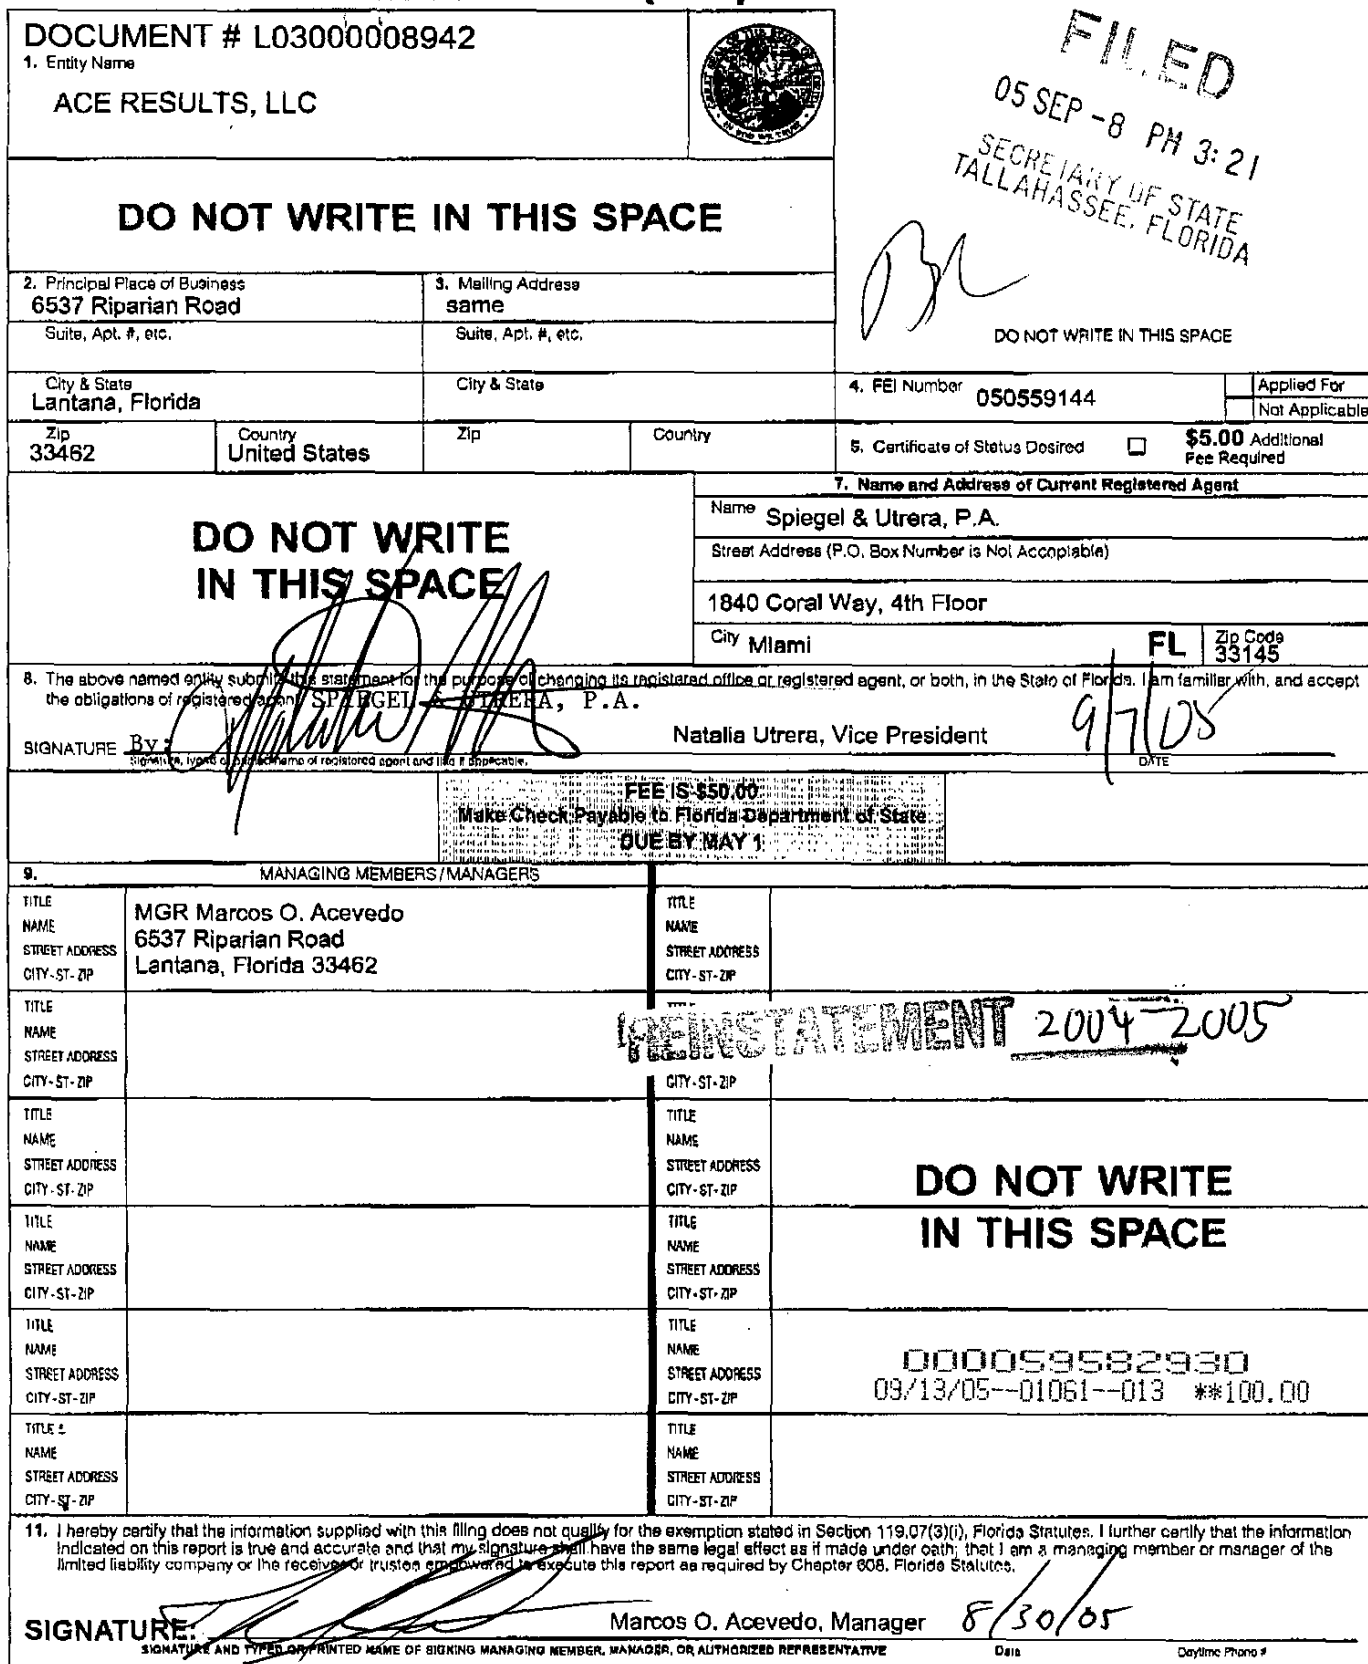 DOCUMENT # L03000008942
1. Entity Name
ACE RESULTS, LLC
FILED
05 SEP -8 PM 3:21
SECRETARY OF STATE
TALLAHASSEE, FLORIDA
DO NOT WRITE IN THIS SPACE
DO NOT WRITE IN THIS SPACE
2. Principal Place of Business
6537 Riparian Road
3. Mailing Address
same
Suite, Apt. #, etc.
Suite, Apt. #, etc.
City & State
Lantana, Florida
City & State
4. FEI Number
050559144
Applied For
Not Applicable
Zip
33462
Country
United States
Zip
Country
5. Certificate of Status Desired
$5.00 Additional
Fee Required
DO NOT WRITE
IN THIS SPACE
7. Name and Address of Current Registered Agent
Name Spiegel & Utrera, P.A.
Street Address (P.O. Box Number is Not Acceptable)
1840 Coral Way, 4th Floor
City Miami
FL
Zip Code
33145
8. The above named entity submits this statement for the purpose of changing its registered office or registered agent, or both, in the State of Florida. I am familiar with, and accept
the obligations of registered agent. SPIEGEL & UTRERA, P.A.
SIGNATURE By:
Natalia Utrera, Vice President
9/7/05
Signature, typed or printed name of registered agent and title if applicable.
DATE
FEE IS $50.00
Make Check Payable to Florida Department of State
DUE BY MAY 1
9. MANAGING MEMBERS/MANAGERS
TITLE
NAME
STREET ADDRESS
CITY-ST-ZIP
MGR Marcos O. Acevedo
6537 Riparian Road
Lantana, Florida 33462
TITLE
NAME
STREET ADDRESS
CITY-ST-ZIP
TITLE
NAME
STREET ADDRESS
CITY-ST-ZIP
REINSTATEMENT 2004-2005
CITY-ST-ZIP
TITLE
NAME
STREET ADDRESS
CITY-ST-ZIP
TITLE
NAME
STREET ADDRESS
CITY-ST-ZIP
DO NOT WRITE
IN THIS SPACE
TITLE
NAME
STREET ADDRESS
CITY-ST-ZIP
TITLE
NAME
STREET ADDRESS
CITY-ST-ZIP
TITLE
NAME
STREET ADDRESS
CITY-ST-ZIP
TITLE
NAME
STREET ADDRESS
CITY-ST-ZIP
000059582930
09/13/05--01061--013 **100.00
TITLE
NAME
STREET ADDRESS
CITY-ST-ZIP
TITLE
NAME
STREET ADDRESS
CITY-ST-ZIP
11. I hereby certify that the information supplied with this filing does not qualify for the exemption stated in Section 119.07(3)(i), Florida Statutes. I further certify that the information
indicated on this report is true and accurate and that my signature shall have the same legal effect as if made under oath; that I am a managing member or manager of the
limited liability company or the receiver or trustee empowered to execute this report as required by Chapter 608, Florida Statutes.
SIGNATURE:
Marcos O. Acevedo, Manager
8/30/05
SIGNATURE AND TYPED OR PRINTED NAME OF SIGNING MANAGING MEMBER, MANAGER, OR AUTHORIZED REPRESENTATIVE
Date
Daytime Phone #